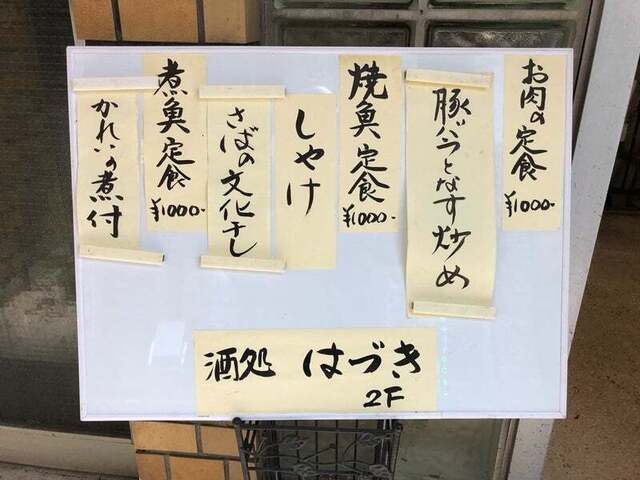 お肉の定食
¥1000-
豚バラとなす炒め
焼魚定食
¥1000-
しゃけ
さばの文化干し
煮魚定食
¥1000-
かれいの煮付
酒処 はづき
2F